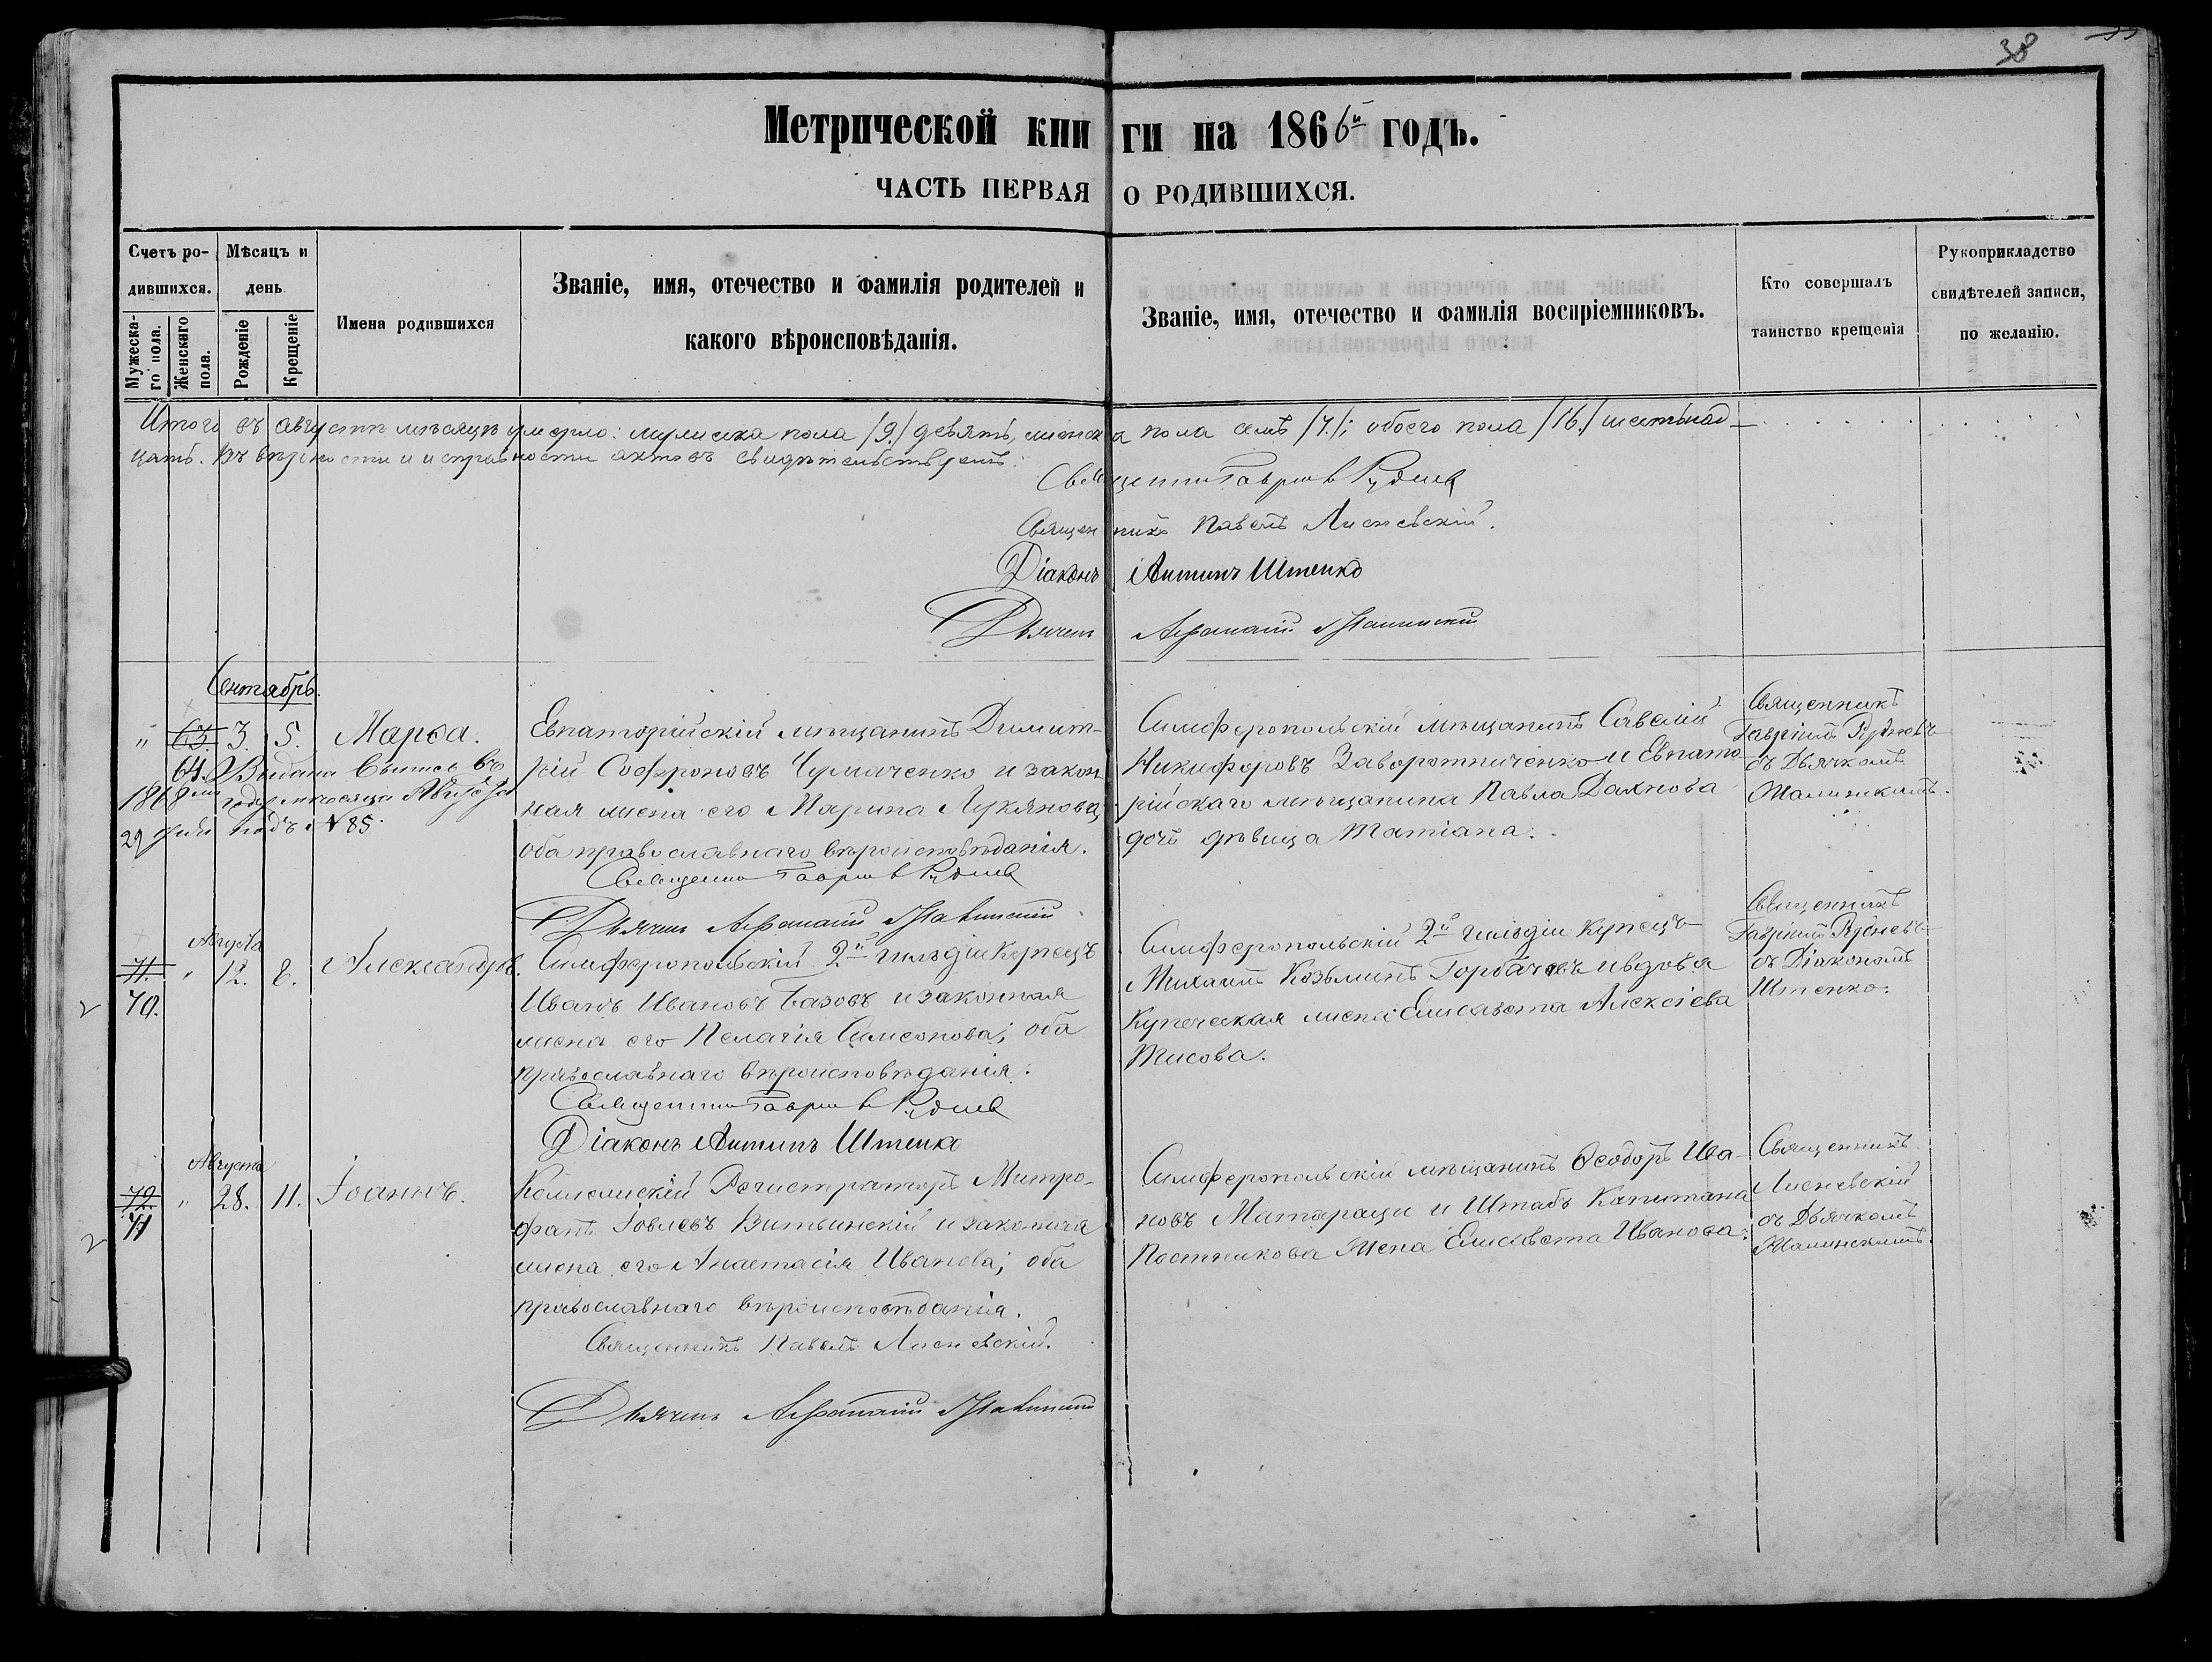 38
Метрической книги на 1866й годъ.
ЧАСТЬ ПЕРВАЯ О РОДИВШИХСЯ.
Счетъ родившихся.
Мужескаго пола.
Женскаго пола.
Мѣсяцъ и день
Рожденіе
Крещеніе
Имена родившихся
Званіе, имя, отечество и фамилія родителей и
какого вѣроисповѣданія.
Званіе, имя, отечество и фамилія воспріемниковъ.
Кто совершалъ
таинство крещенія
Рукоприкладство
свидѣтелей записи,
по желанію.
Итого въ августѣ мѣсяцѣ умерло: мужеска пола /9./ девять, женска пола семь /7./; обоего пола /16./ шестьнад-
цать. Въ вѣрности и исправности актовъ свидѣтельствуютъ:
Священник Гавриил Руднев
Священникъ Павелъ Лисневскій.
Діаконъ Антипъ Штенко
Дьячекъ Афанасій
Сентябрь.
" 63. 3. 5. Марѳа.
64. Выдана Выпись въ
1868мъ году мѣсяца Августа
29 дня подъ N 85.
Евпаторійскій мѣщанинъ Димит-
рій Софроновъ Чумаченко и закон-
ная жена его Марина Лукянова,
оба православнаго вѣроисповѣданія.
Священник Гавриил Руднев
Дьячекъ Афанасій
Симферопольскій мѣщанинъ Савелій
Никифоровъ Заворотниченко и Евпато-
рійскаго мѣщанина Павла Дахнова
дочь дѣвица Татіана.
Священникъ
Гавріилъ Рудневъ
съ Дьячкомъ
Августа
71. " 12. 8. Александръ.
70.
Симферопольскій 2й гильдіи Купецъ
Иванъ Ивановъ Базовъ и законная
жена его Пелагія Симсонова; оба
православнаго вѣроисповѣданія.
Священник Гавриил Руднев
Діаконъ Антипъ Штенко
Симферопольскій 2й гильдіи Купецъ
Михаилъ Козьминъ Горбачевъ и вдова
Купеческая жена Елисавета Алексіева
Тисова.
Священникъ
Гавріилъ Рудневъ
съ Діакономъ
Штенко.
Августа
72. " 28. 11. Іоаннъ.
71
Коллежскій Регистраторъ Митро-
фанъ Іовлевъ Витвинскій и законная
жена его Анастасія Иванова; оба
православнаго вѣроисповѣданія.
Священникъ Павелъ Лисневскій.
Дьячекъ Афанасій
Симферопольскій мѣщанинъ Ѳеодоръ Ива-
новъ Матараци и Штабъ Капитана
Постникова Жена Елисавета Иванова.
Священникъ
Лисневскій
съ Дьячкомъ